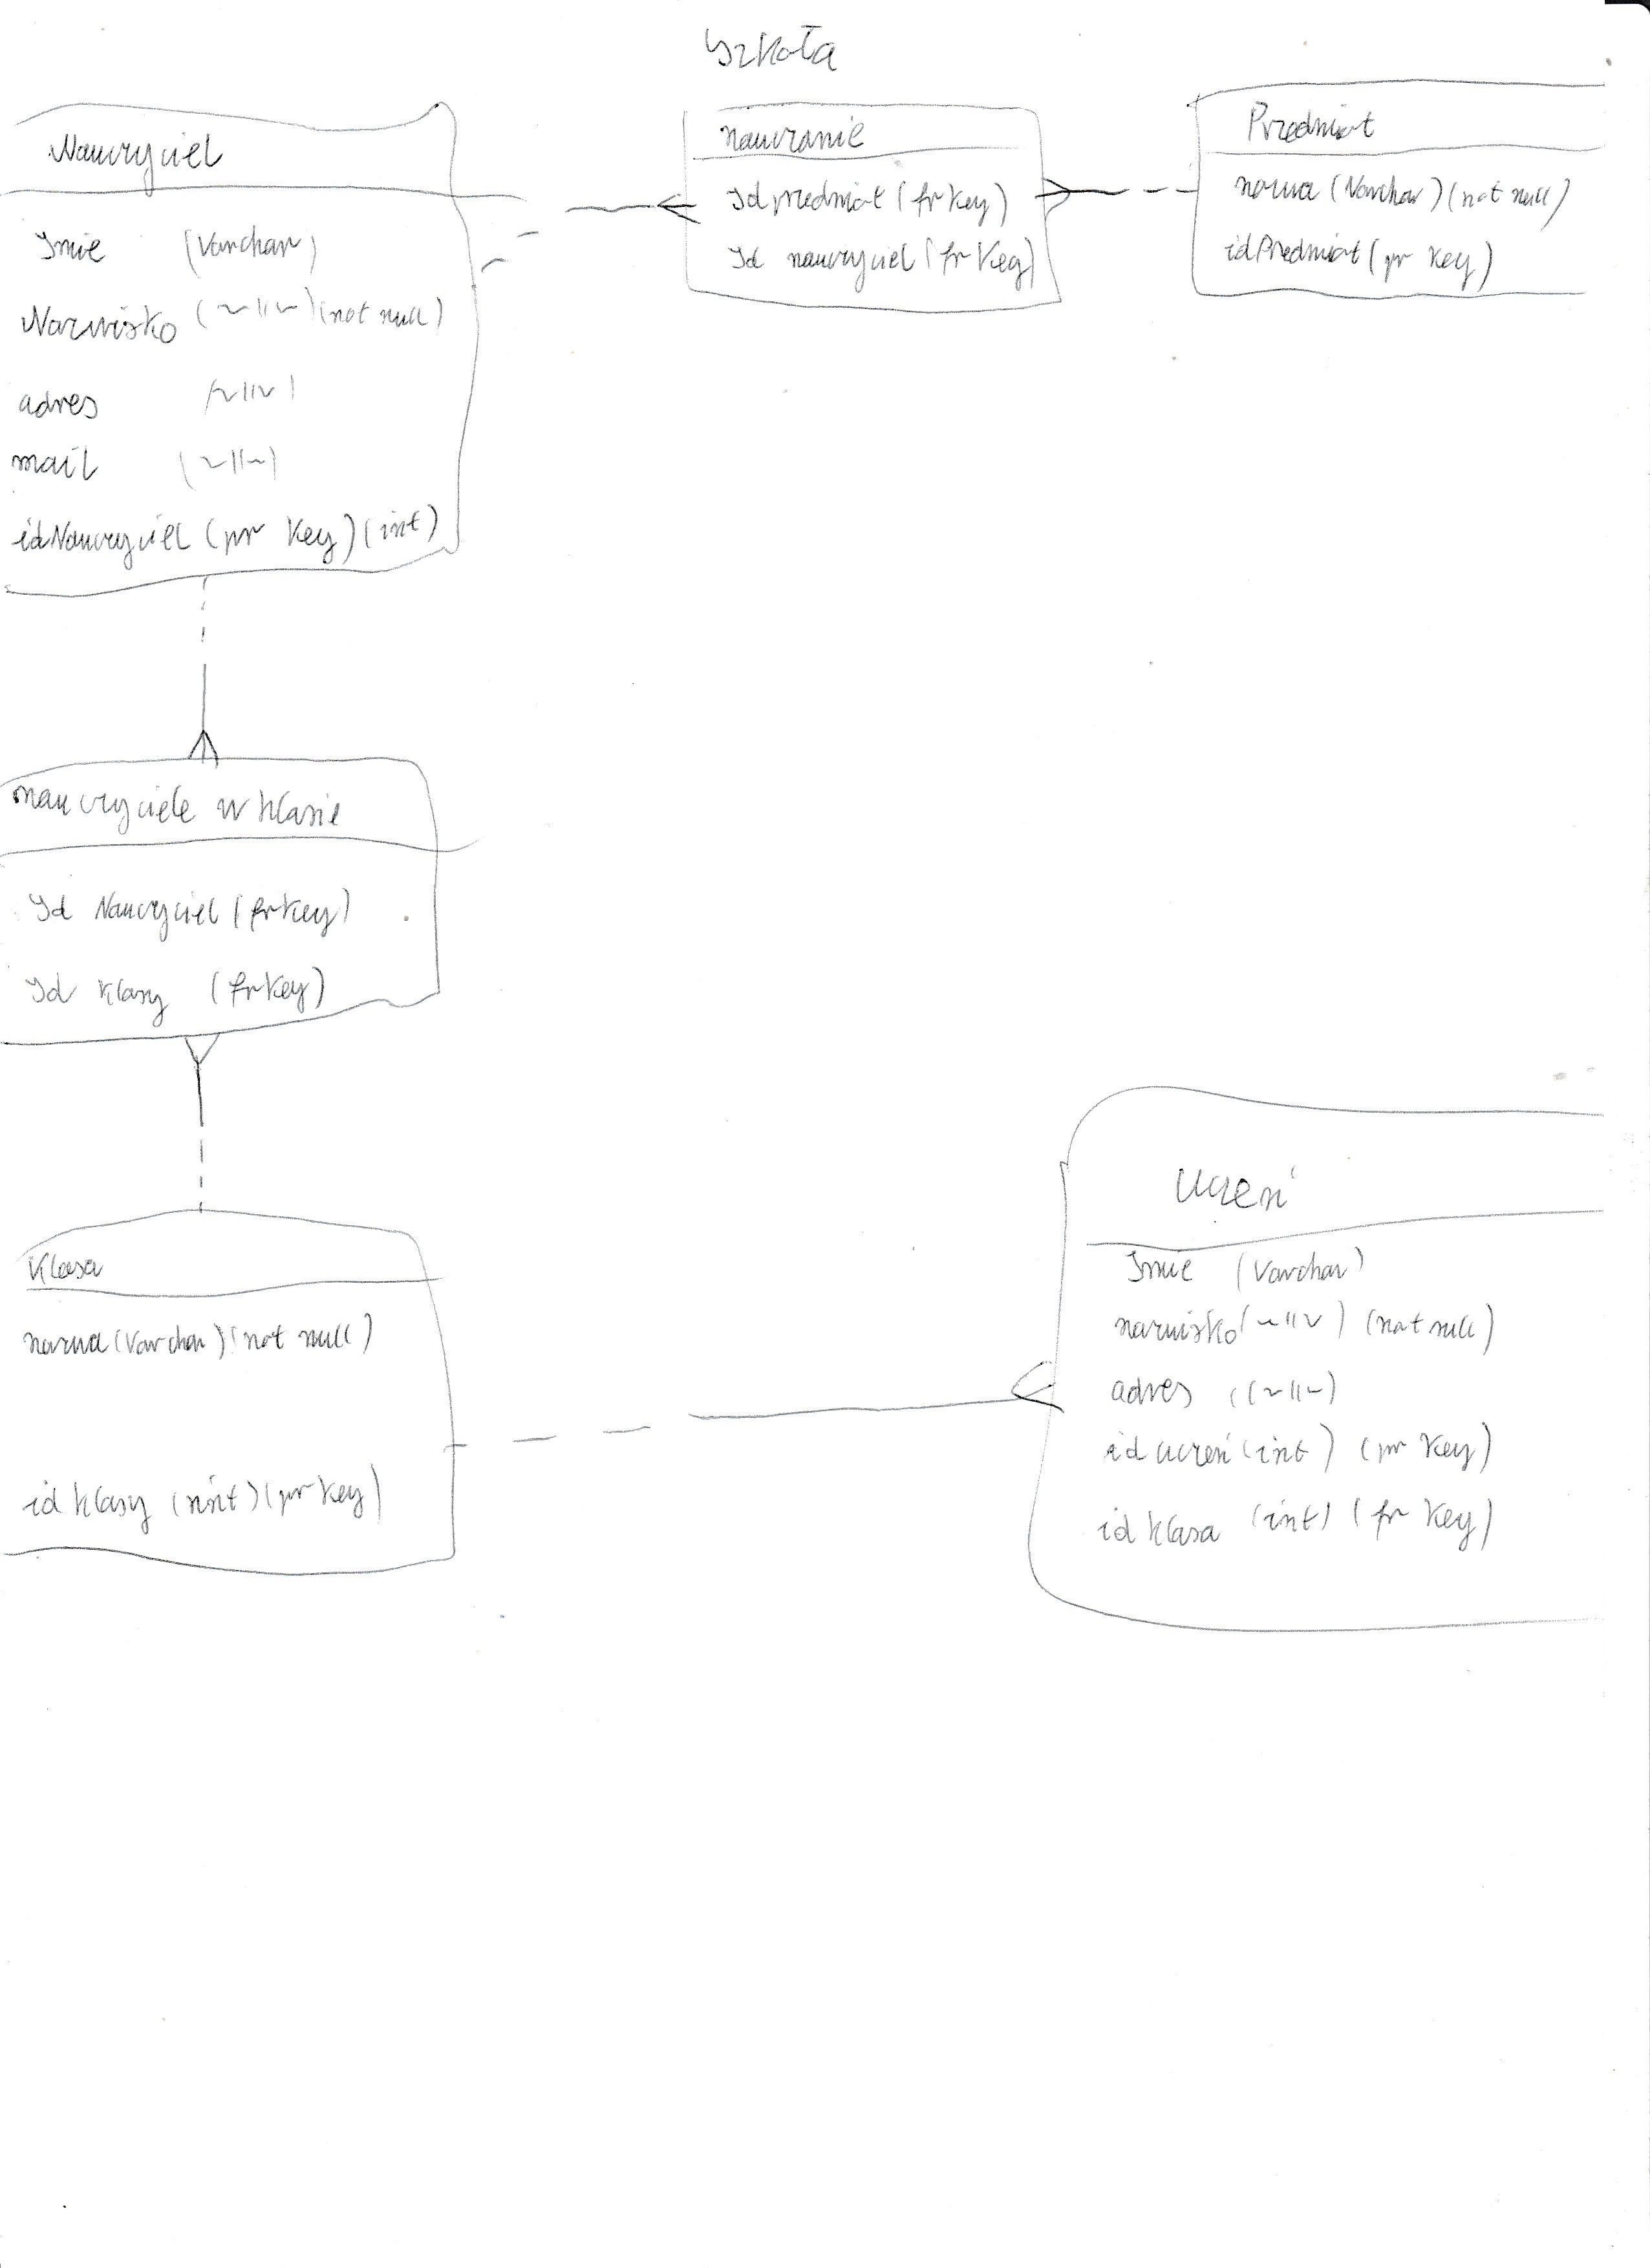 Szkoła
Nauczyciel
Imie (Varchar)
Nazwisko (~||~) (not null)
adres (~||~)
mail (~||~)
idNauczyciel (pr Key) (int)
nauczanie
Id przedmiot (fr Key)
Id nauczyciel (fr Key)
Przedmiot
nazwa (Varchar) (not null)
idPrzedmiot (pr Key)
nauczyciele w klasie
Id Nauczyciel (fr Key)
Id klasy (fr Key)
Klasa
nazwa (Varchar) (not null)
id klasy (int) (pr Key)
Uczeń
Imie (Varchar)
nazwisko (~||~) (not null)
adres (~||~)
id uczeń (int) (pr Key)
id klasa (int) (fr Key)